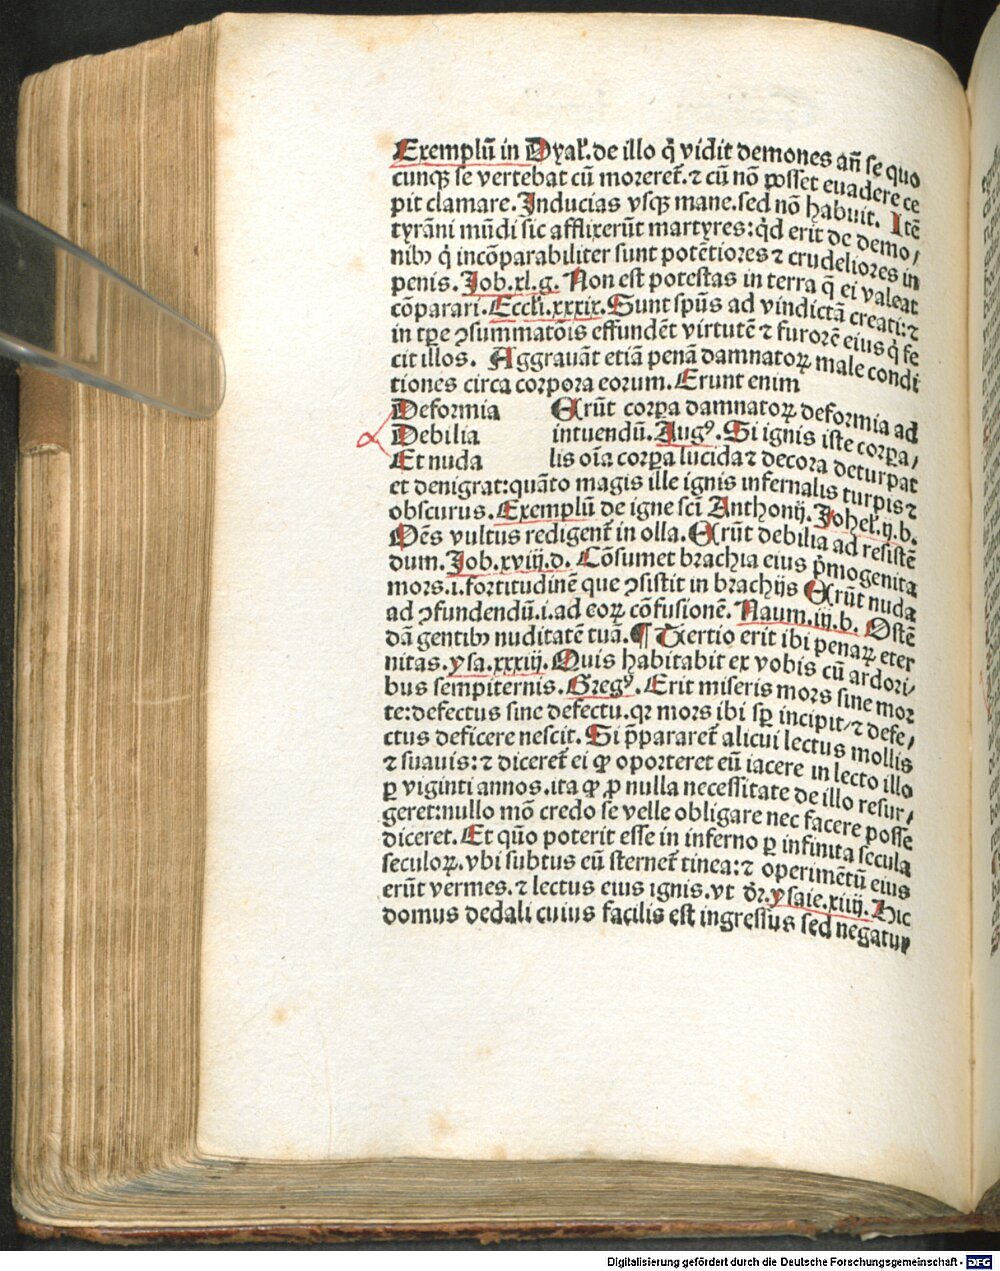 Exemplū in Dyal̄. de illo q̄ vidit demones añ se quo
cunqꝫ se vertebat cū moreret̄. ⁊ cū nō posset euadere ce
pit clamare. Inducias vsqꝫ mane. sed nō habuit. Itē
tyrāni mūdi sic afflixerūt martyres: qͥd erit de demo/
nibꝫ qͥ incōparabiliter sunt potētiores ⁊ crudeliores in
penis. Job. xl. g. Non est potestas in terra q̄ ei valeat
cōparari. Eccłi. xxxix. Sunt spūs ad vindictā creati: ⁊
in tꝑe ꝯsummatōis effundēt virtutē ⁊ furorē eius qͥ fe
cit illos. Aggrauāt etiā penā damnatoꝝ male condi
tiones circa corpora eorum. Erunt enim
Deformia Erūt corꝑa damnatoꝝ deformia ad
Debilia intuendū. Augꝰ. Si ignis iste corꝑa/
Et nuda lis oīa corꝑa lucida ⁊ decora deturpat
et denigrat: quāto magis ille ignis infernalis turpis ⁊
obscurus. Exemplū de igne scī Anthonij. Johel̄. ij. b.
Oēs vultus redigent̄ in olla. Erūt debilia ad resistē
dum. Job. xviij. d. Cōsumet brachia eius pͥmogenita
mors. i. fortitudinē que ꝯsistit in brachijs Erūt nuda
ad ꝯfundendū. i. ad eoꝝ cōfusionē. Naum. iij. b. Ostē
dā gentibꝫ nuditatē tuā. ¶ Tertio erit ibi penaꝝ eter
nitas. ysa. xxxiij. Quis habitabit ex vobis cū ardori/
bus sempiternis. Gregꝰ. Erit miseris mors sine mor
te: defectus sine defectu. qꝛ mors ibi sꝑ incipit/ ⁊ defe/
ctus deficere nescit. Si p̄pararet̄ alicui lectus mollis
⁊ suauis: ⁊ diceret̄ ei ꝙ oporteret eū iacere in lecto illo
ꝑ viginti annos. ita ꝙ ꝓ nulla necessitate de illo resur/
geret: nullo mō credo se velle obligare nec facere posse
diceret. Et quō poterit esse in inferno ꝑ infinita secula
seculoꝝ. vbi subtus eū sternet̄ tinea: ⁊ operimētū eius
erūt vermes. ⁊ lectus eius ignis. vt dr̄. ysaie. xiiij. Hic
domus dedali cuius facilis est ingressus sed negatur
Digitalisierung gefördert durch die Deutsche Forschungsgemeinschaft - DFG